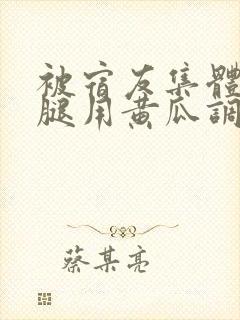 被宿友集體
腿用黄瓜調
蔡某亮